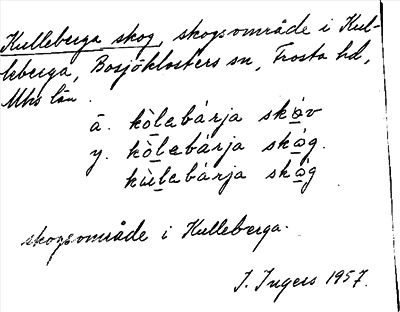 Kulleberga skog, skogsområde i Kul-
leberga, Bosjöklosters sn, Frosta hd,
Mhs län.
ä. kòlebárja skóv
y. kòlebárja skóg.
kùlebárja skóg
skogsområde i Kulleberga.
I. Ingers 1957.